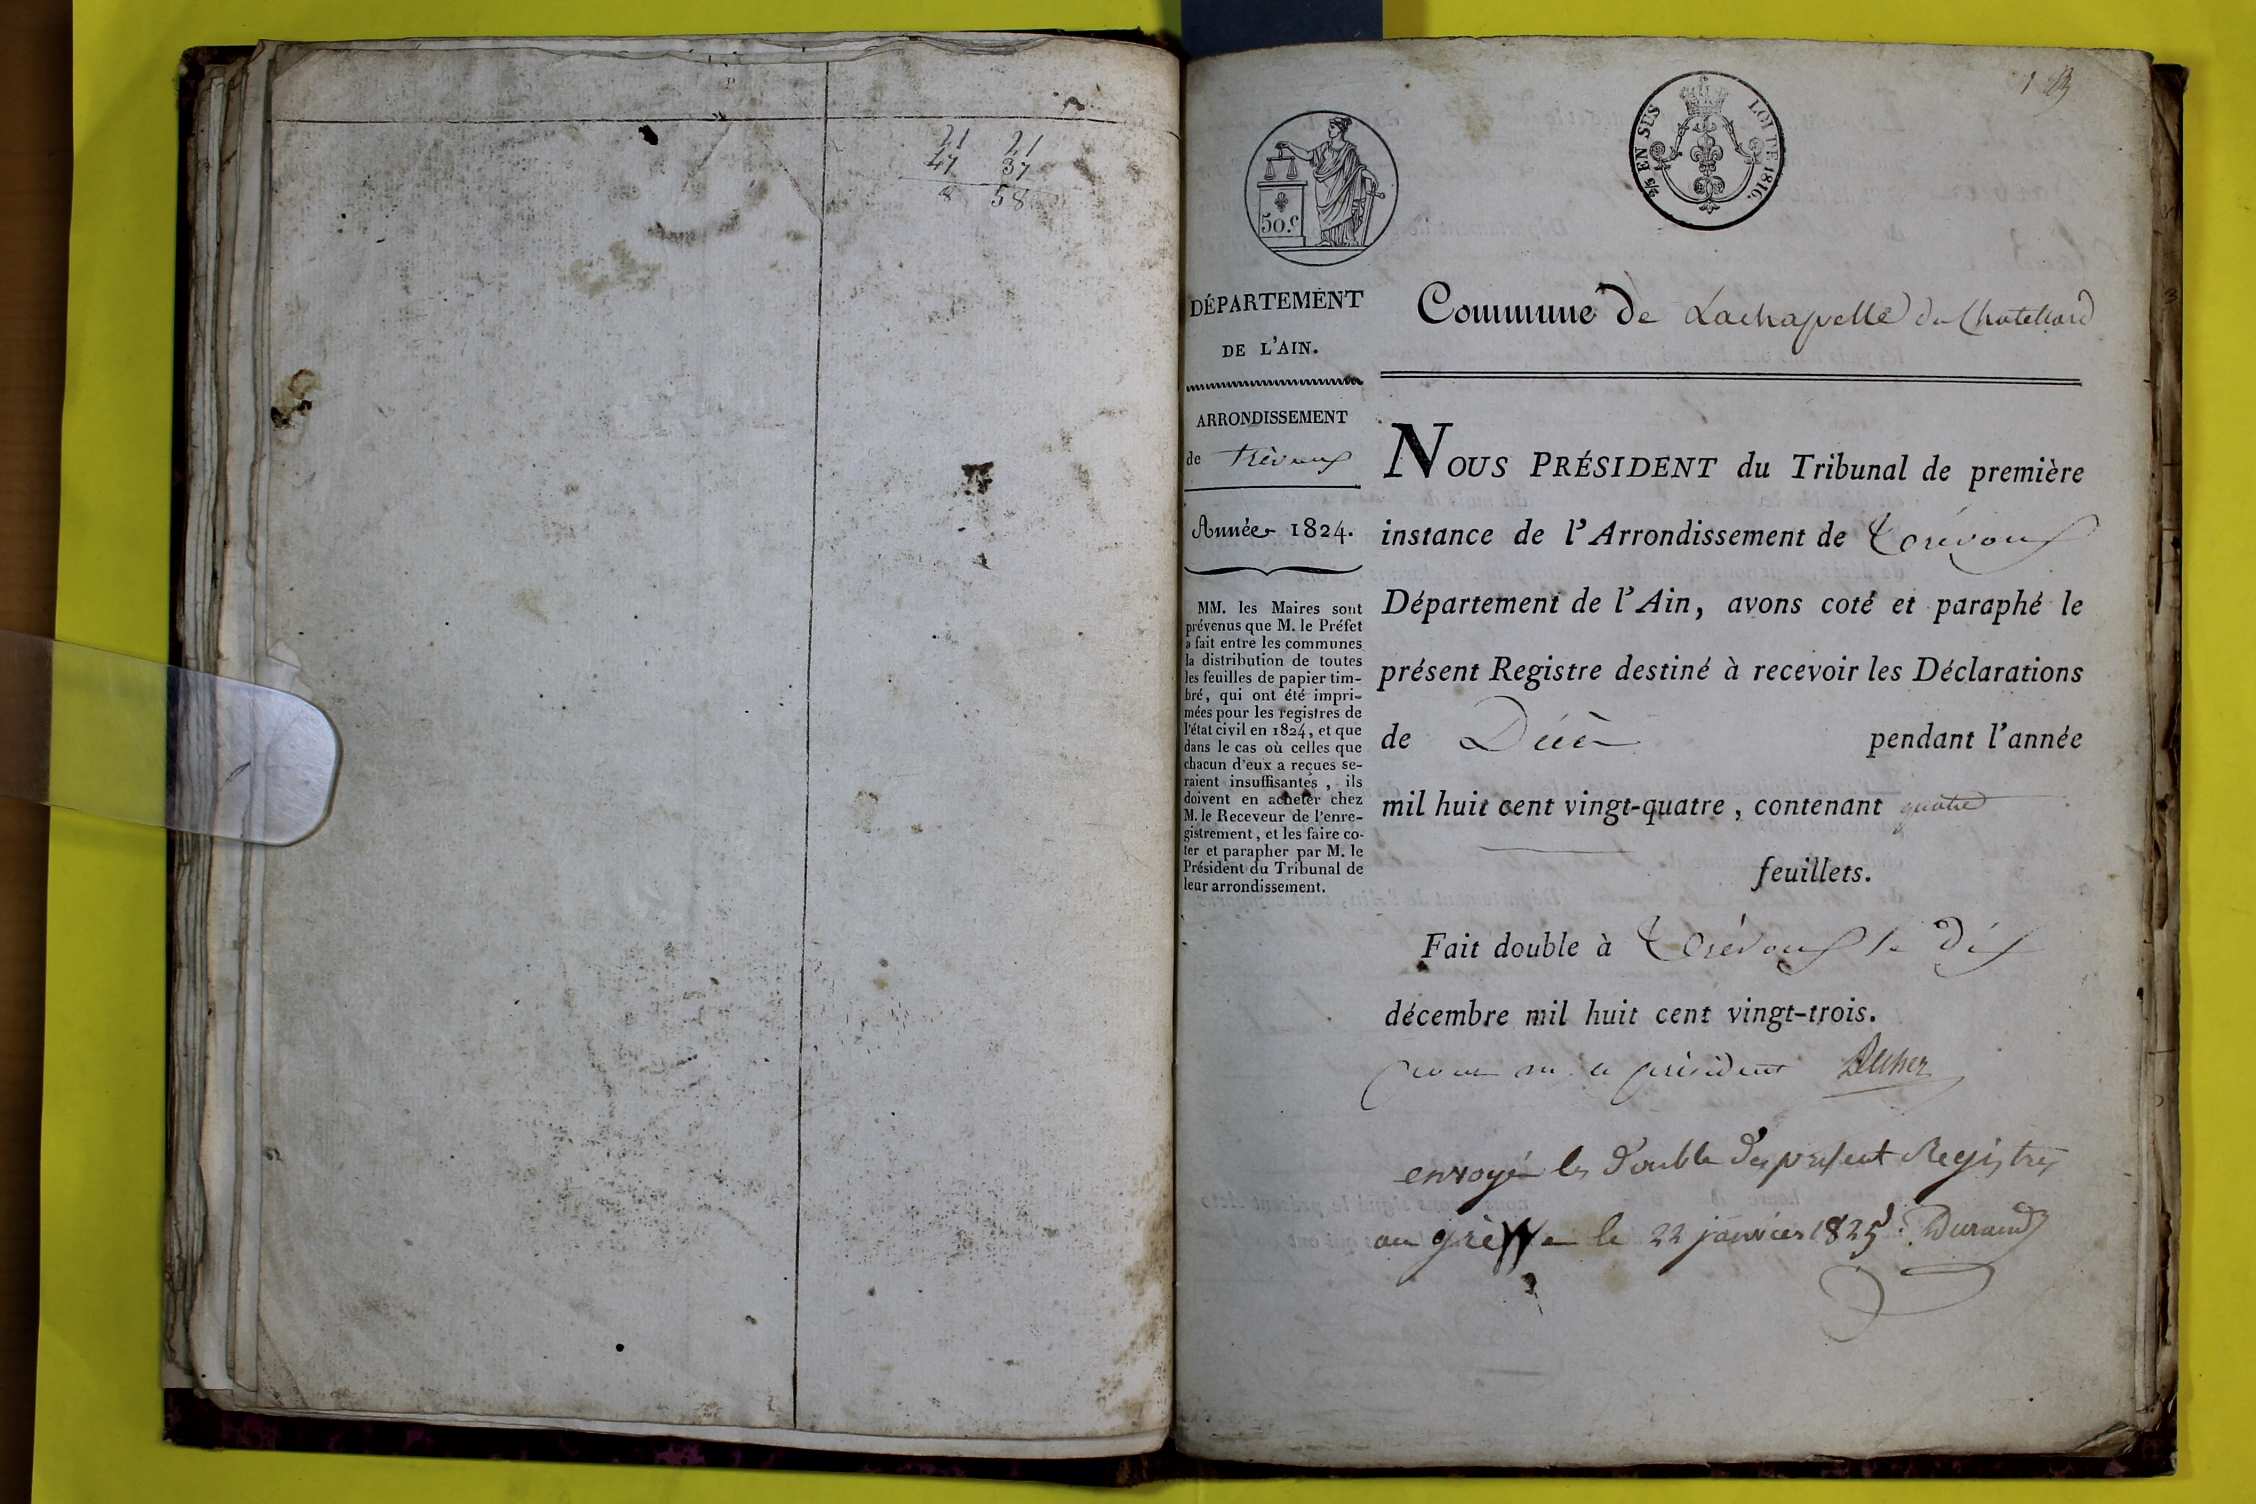 21 21
47 37
8 58
1
50.c
2/5 EN SUS LOI DE 1816.
DÉPARTEMENT
DE L'AIN.
ARRONDISSEMENT
de trévoux
Année 1824.
MM. les Maires sont
prévenus que M. le Préfet
a fait entre les communes
la distribution de toutes
les feuilles de papier tim-
bré, qui ont été impri-
mées pour les registres de
l'état civil en 1824, et que
dans le cas où celles que
chacun d'eux a reçues se-
raient insuffisantes, ils
doivent en acheter chez
M. le Receveur de l'enre-
gistrement, et les faire co-
ter et parapher par M. le
Président du Tribunal de
leur arrondissement.
Commune de Lachapelle du Chatellard
NOUS PRÉSIDENT du Tribunal de première
instance de l'Arrondissement de Trévoux
Département de l'Ain, avons coté et paraphé le
présent Registre destiné à recevoir les Déclarations
de Décès pendant l'année
mil huit cent vingt-quatre, contenant quatre
feuillets.
Fait double à Trévoux le dix
décembre mil huit cent vingt-trois.
pour m. le président
envoyé les double des present Registres
au greffe le 22 janvier 1825 Durand